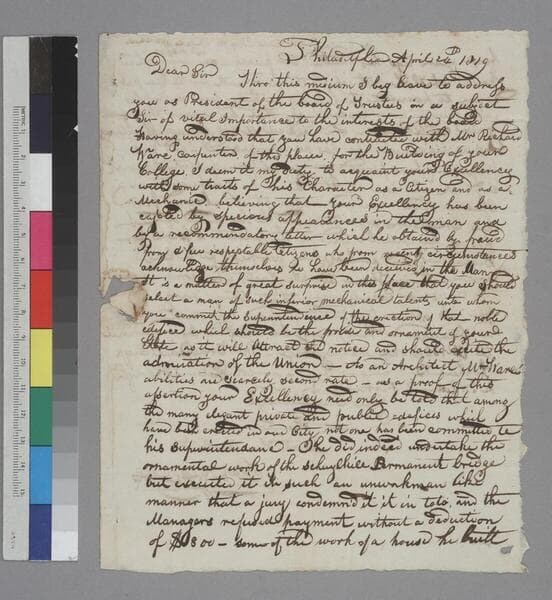 Philadelphia April 14th 1819
Dear Sir
Thro this medium I beg leave to address
you as President of the board of Trustees on a subject
Sir of vital importance to the interests of the board
Having understood that you have contracted with Mr Richard
Ware Carpenter of this place, for the Building of your
College I deem it my duty to acquaint your Excellency
with some traits of His Character as a Citizen and as a
Mechanic, believing that your Excellency has been
by specious appearances in the man and
by a recommendatory letter which he obtained by fraud
from a few respectable Citizens who from recent circumstances
acknowledge themselves to have been deceived in the Man
It is a matter of great surprise in this place that you should
select a man of such inferior mechanical talents unto whom
you commit the Superintendence of the erection of that noble
edifice which should be the pride and ornament of your
State as it will attract the notice and should excite the
admiration of the Union — As an Architect Mr Ware's
abilities are scarcely second rate — as a proof of this
assertion your Excellency need only be told that among
the many elegant private and publick edifices which
have been erected in our City, not one has been committed to
his Superintendance — He did indeed undertake the
ornamental work of the Schuylkill Permanent bridge
but executed it in such an unworkman like
manner that a jury condemn'd it in toto, and the
Managers refused payment without a deduction
of $800 — some of the work of a house he built